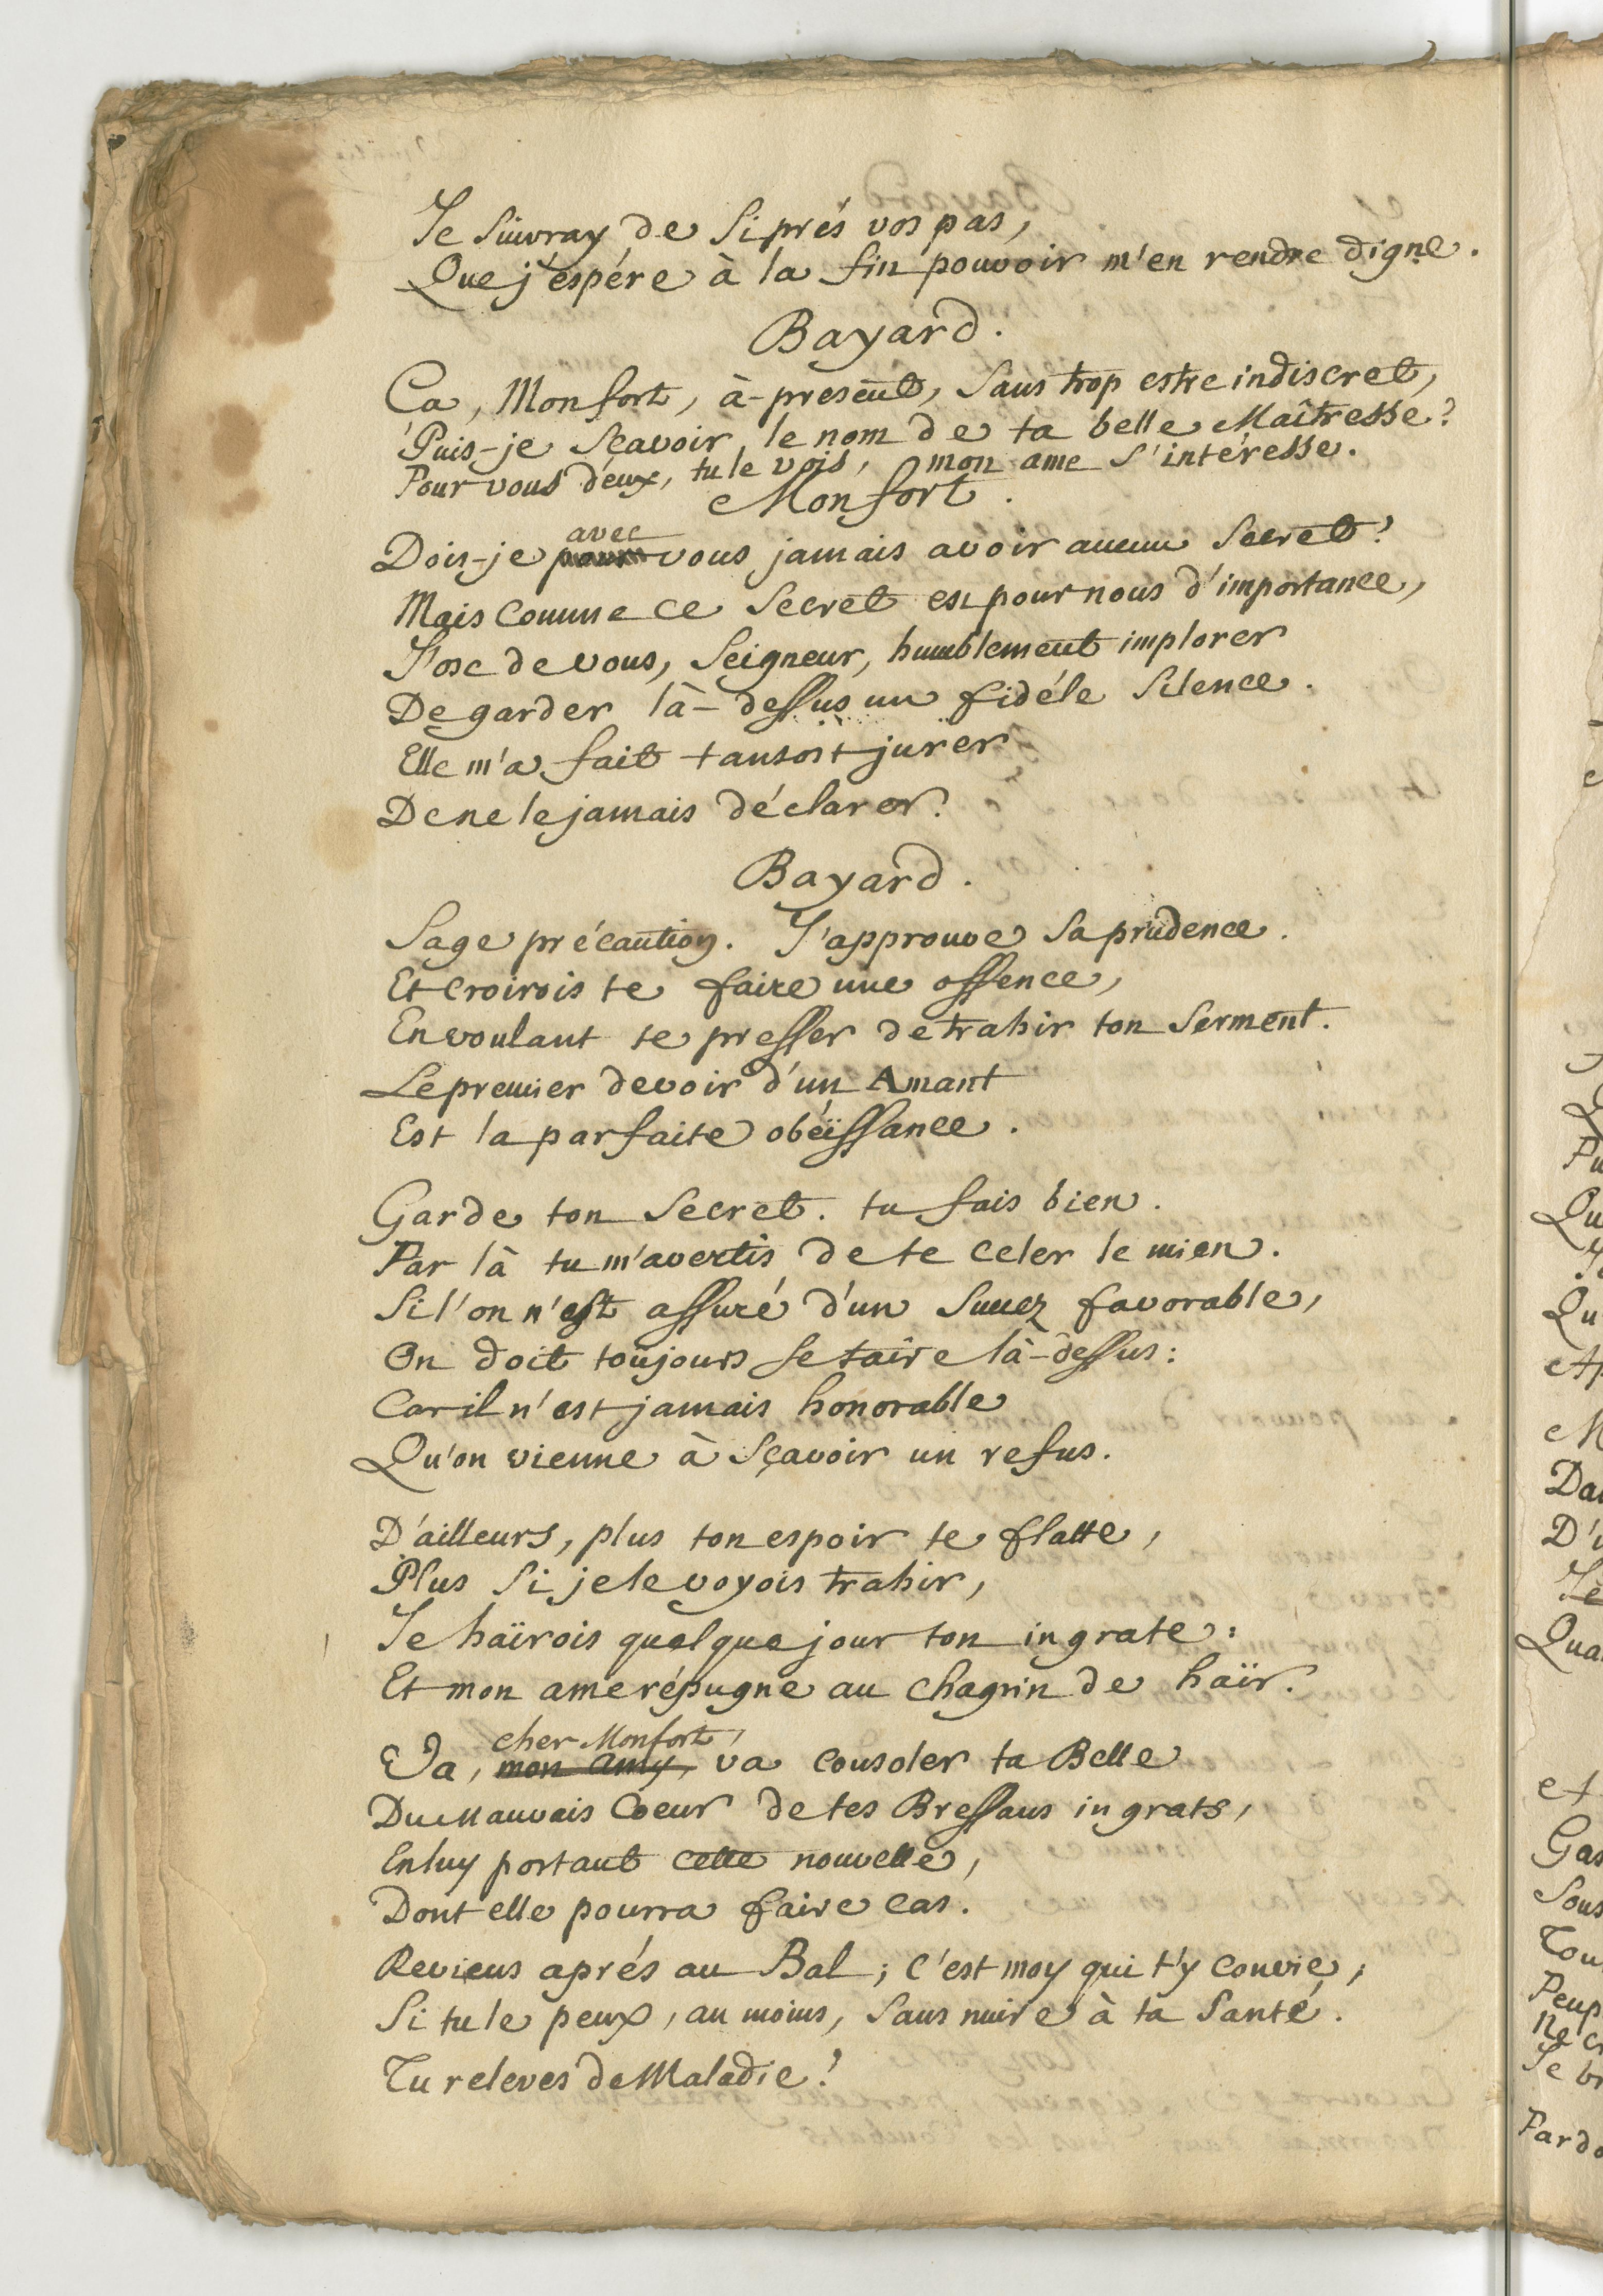 Je suivray de si prés vos pas,
Que j'espére à la fin pouvoir m'en rendre digne.
Bayard.
Ca, Monfort, à-present, sans trop estre indiscret,
Puis-je sçavoir le nom de ta belle Maîtresse?
Pour vous deux, tu le vois, mon ame s'intéresse.
Monfort.
avec
Dois-je pour vous jamais avoir aucun secret?
Mais comme ce secret est pour nous d'importance,
J'ose de vous, Seigneur, humblement implorer
De garder là-dessus un fidéle silence.
Elle m'a fait tantost jurer
De ne le jamais déclarer.
Bayard.
Sage précaution. J'approuve sa prudence.
Et croirois te faire une offence,
En voulant te presser de trahir ton serment.
Le premier devoir d'un Amant
Est la parfaite obéïssance.
Garde ton secret. tu fais bien.
Par là tu m'avertis de te celer le mien.
Si l'on n'est assuré d'un succez favorable,
On doit toûjours se taire là-dessus:
Car il n'est jamais honorable
Qu'on vienne à sçavoir un refus.
D'ailleurs, plus ton espoir te flatte,
Plus si je le voyois trahir,
Je haïrois quelque jour ton ingrate:
Et mon ame répugne au chagrin de haïr.
cher Monfort,
Va, mon amy, va consoler ta Belle
Du mauvais Coeur de tes Bressans ingrats,
En luy portant cette nouvelle,
Dont elle pourra faire cas.
Reviens aprés au Bal; c'est moy qui t'y convie,
Si tu le peux, au moins, sans nuire à ta santé.
Tu releves de Maladie!